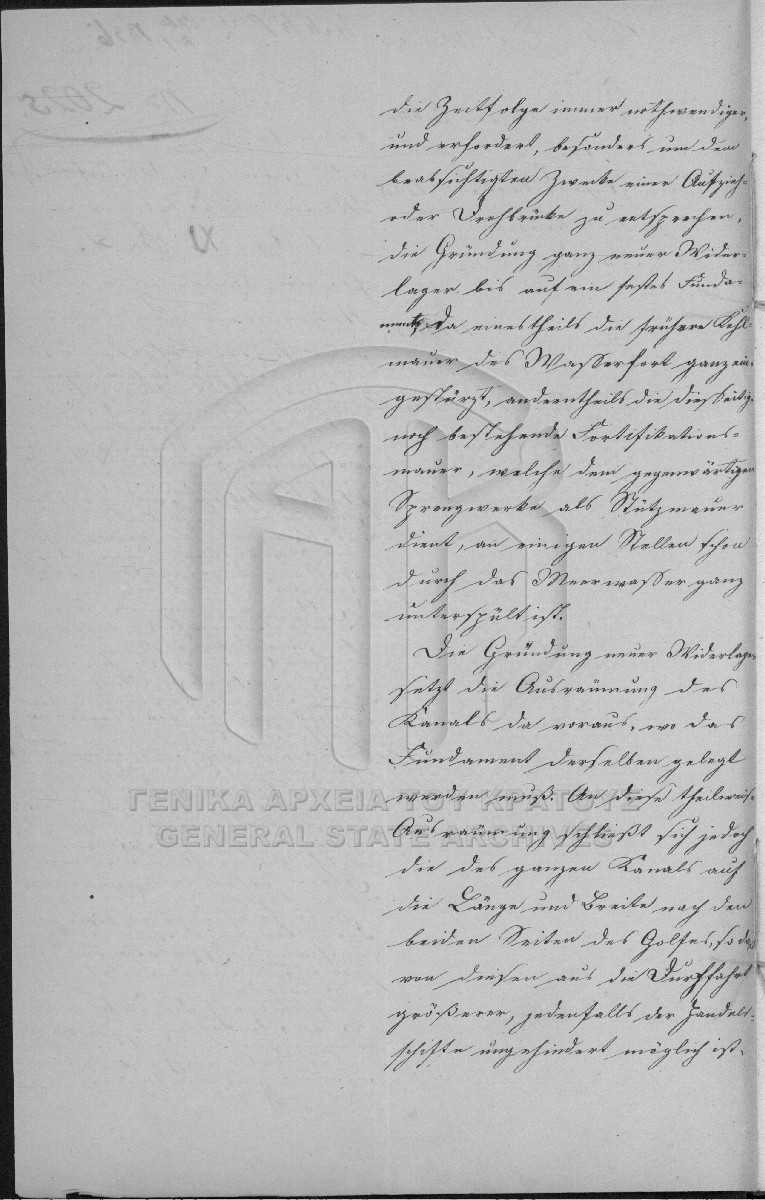 die Zeitfolge immer nothwendiger,
und erfordert, besonders um dem
beabsichtigten Zwecke einer Aufzieh-
oder Drehbrücke zu entsprechen,
die Gründung ganz neuer Wider-
lager bis auf ein festes Funda-
ment, da eines theils die frühere Kehl-
mauer des Wasserfort ganz ein-
gestürzt, anderntheils die diesseitig
noch bestehende Fortifikations-
mauer, welche dem gegenwärtigen
Sprengwerke als Stützmauer
dient, an einigen Stellen schon
durch das Meerwasser ganz
unterspült ist.
Die Gründung neuer Widerlager
setzt die Ausräumung des
Kanals da voraus, wo das
Fundament derselben gelegt
werden muß. An diese theilweise
Ausräumung schließt sich jedoch
die des ganzen Kanals auf
die Länge und Breite nach den
beiden Seiten des Golfes, so daß
von diesen aus die Durchfahrt
größerer, jedenfalls der Handels-
schiffe ungehindert möglich ist.
ΓΕΝΙΚΑ ΑΡΧΕΙΑ ΤΟΥ ΚΡΑΤΟΥΣ
GENERAL STATE ARCHIVES